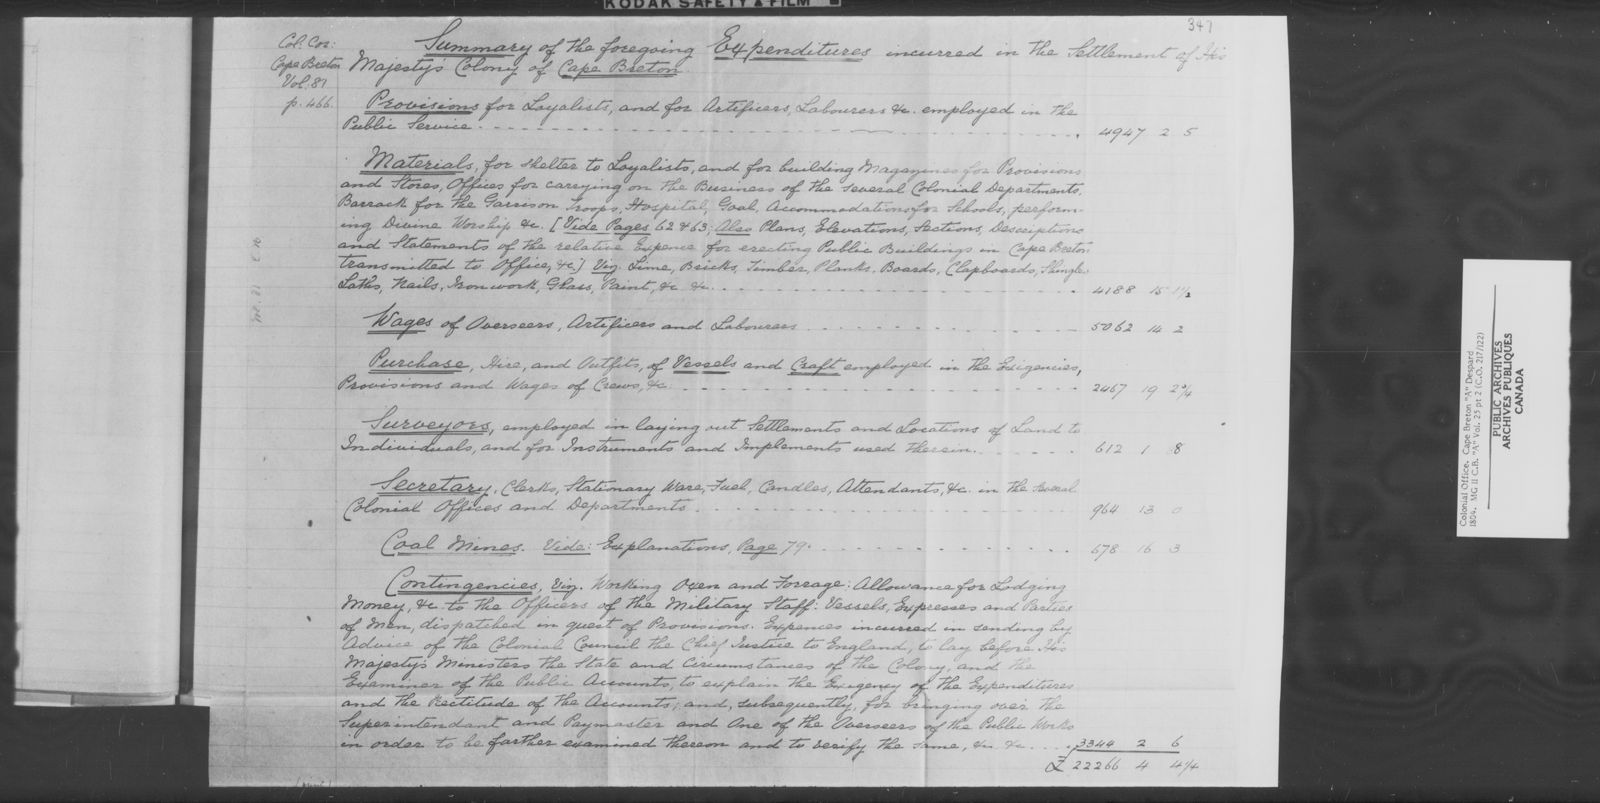 KODAK SAFETY FILM
347
Col. Cor:
Cape Breton
Vol. 81
p. 466.
Summary of the foregoing Expenditures incurred in the Settlement of His
Majesty's Colony of Cape Breton.
Provisions for Loyalists, and for Artificers, Labourers &c. employed in the
Public Service. 4947 2 5
Materials, for shelter to Loyalists, and for building Magazines for Provisions
and Stores, Offices for carrying on the Business of the several Colonial Departments,
Barrack for the Garrison Troops, Hospital, Goal, Accommodations for Schools, perform-
ing Divine Worship &c. [Vide Pages 62 & 63; Also Plans, Elevations, Sections, Descriptions
and Statements of the relative Expence for erecting Public Buildings in Cape Breton
transmitted to Office, &c] Viz. Lime, Bricks, Timber, Planks, Boards, Clapboards, Shingle
Laths, Nails, Iron work, Glass, Paint, &c &c. 4188 15 1½
Wages of Overseers, Artificers and Labourers 5062 14 2
Purchase, Hire, and Outfits, of Vessels and Craft employed in the Exigencies,
Provisions and Wages of Crews, &c. 2467 19 2¾
Surveyors, employed in laying out Settlements and Locations of Land to
Individuals, and for Instruments and Implements used therein. 612 1 8
Secretary, Clerks, Stationary Ware, Fuel, Candles, Attendants, &c. in the several
Colonial Offices and Departments. 964 13 0
Coal Mines. Vide: Explanations, Page 79. 678 16 3
Contingencies, Viz. Working Oxen and Forrage: Allowance for Lodging
Money, &c. to the Officers of the Military Staff: Vessels, Expresses and Parties
of Men, dispatched in quest of Provisions. Expences incurred in sending by
Advice of the Colonial Council the Chief Justice to England, to lay before His
Majesty's Ministers the State and Circumstances of the Colony, and the
Examiner of the Public Accounts, to explain the Exigency of the Expenditures
and the Rectitude of the Accounts; and, subsequently, for bringing over the
Superintendant and Paymaster and One of the Overseers of the Public Works
in order to be farther examined thereon and to verify the same, &c &c 3344 2 6
£ 22266 4 4¼
Colonial Office. Cape Breton "A" Despard
1804. MG 11 C.B. "A" Vol. 25 pt 2 (C.O. 217/122)
PUBLIC ARCHIVES
ARCHIVES PUBLIQUES
CANADA